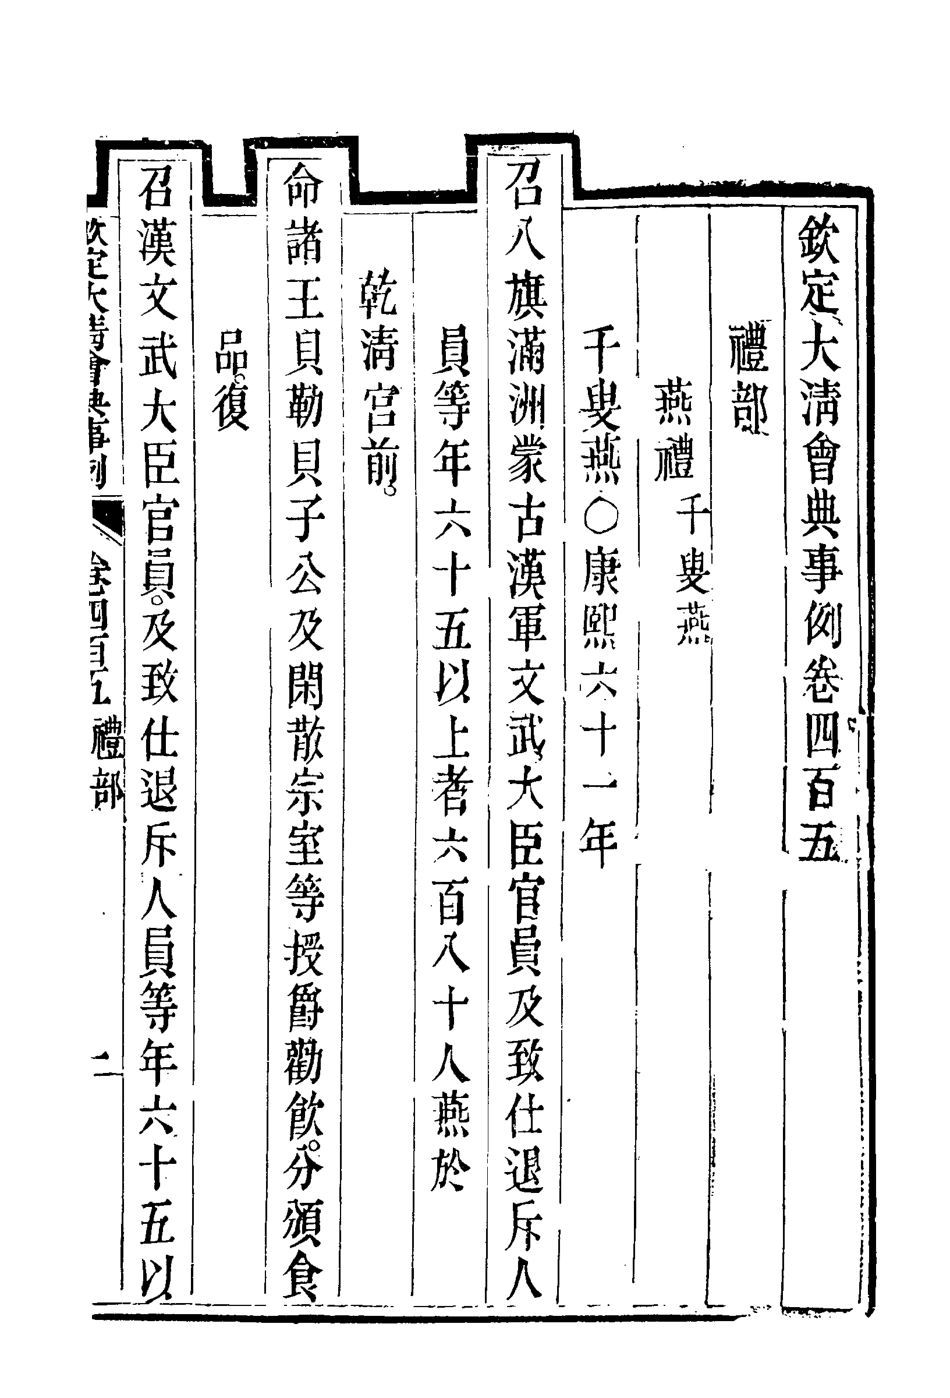 欽定大清會典事例卷四百五
禮部
燕禮 千叟燕
千叟燕○康熙六十一年
召八旗滿洲蒙古漢軍文武大臣官員及致仕退斥人
員等年六十五以上者六百八十人燕於
乾清宮前。
命諸王貝勒貝子公及閑散宗室等授爵勸飲。分頒食
品。復
召漢文武大臣官員。及致仕退斥人員等年六十五以
欽定大清會典事例 卷四百五 禮部 二